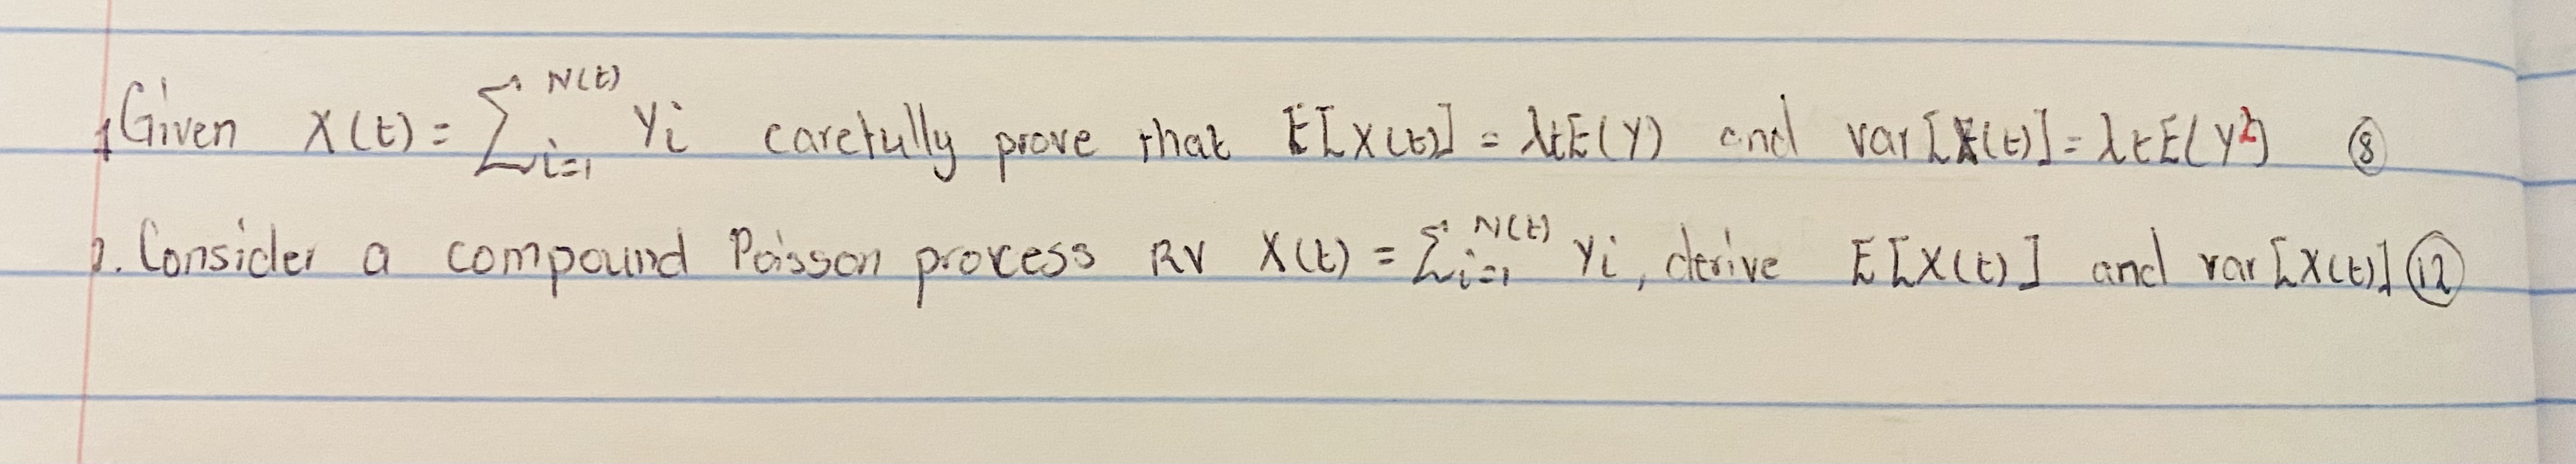 1. Given X(t) = ∑_{i=1}^{N(t)} Yi carefully prove that E[X(t)] = λtE(Y) and var[X(t)] = λtE(Y²) ⑧
2. Consider a compound Poisson process RV X(t) = ∑_{i=1}^{N(t)} Yi, derive E[X(t)] and var[X(t)] ⑫